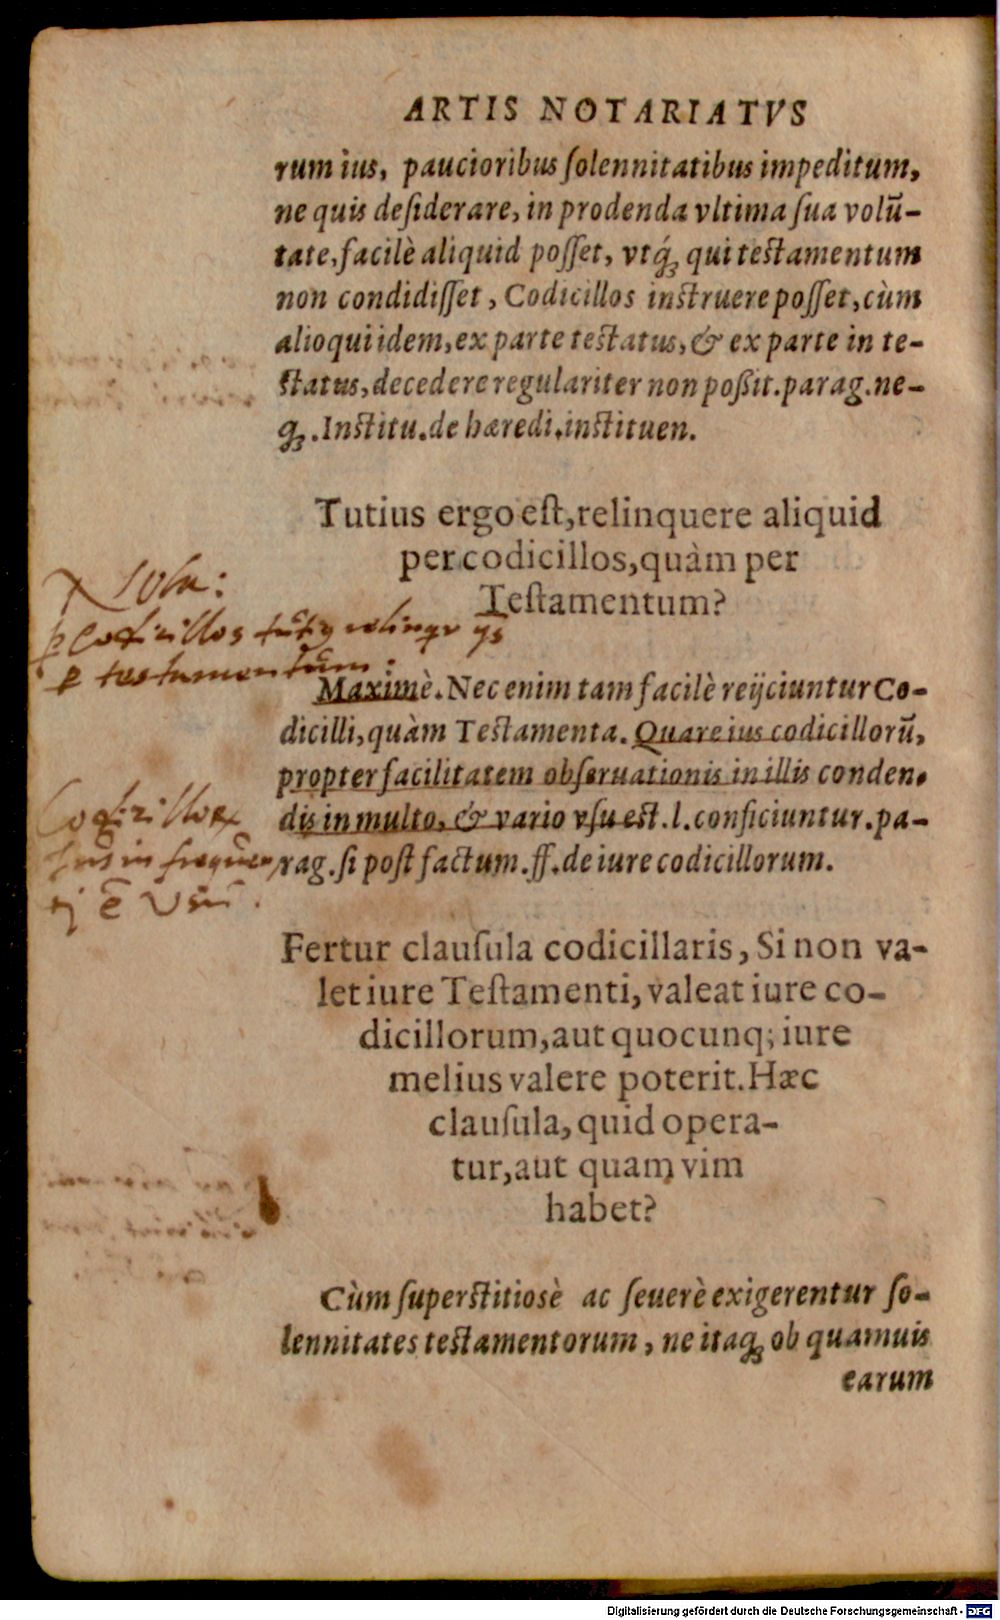 ARTIS NOTARIATVS
rum ius, paucioribus ſolennitatibus impeditum,
ne quis deſiderare, in prodenda vltima ſua volũ-
tate, facilè aliquid poſſet, vtq́; qui testamentum
non condidiſſet, Codicillos instruere poſſet, cùm
alioqui idem, ex parte testatus, & ex parte in te-
ſtatus, decedere regulariter non poßit. parag. ne-
q;. Institu. de hæredi. instituen.
Tutius ergo eſt, relinquere aliquid
per codicillos, quàm per
Teſtamentum?
Nota:
p Codicillos
p testamentum:
Maximè. Nec enim tam facilè reijciuntur Co-
dicilli, quàm Testamenta. Quare ius codicillorũ,
propter facilitatem obſeruationis in illis conden-
dis in multo, & vario vſu est. l. conficiuntur. pa-
rag. ſi poſt factum. ff. de iure codicillorum.
Codicillor
Usu.
Fertur clauſula codicillaris, Si non va-
let iure Teſtamenti, valeat iure co-
dicillorum, aut quocunq; iure
melius valere poterit. Hæc
clauſula, quid opera-
tur, aut quam vim
habet?
Cùm ſuperstitiosè ac ſeuerè exigerentur ſo-
lennitates testamentorum, ne itaq; ob quamuis
earum
Digitalisierung gefördert durch die Deutsche Forschungsgemeinschaft - DFG